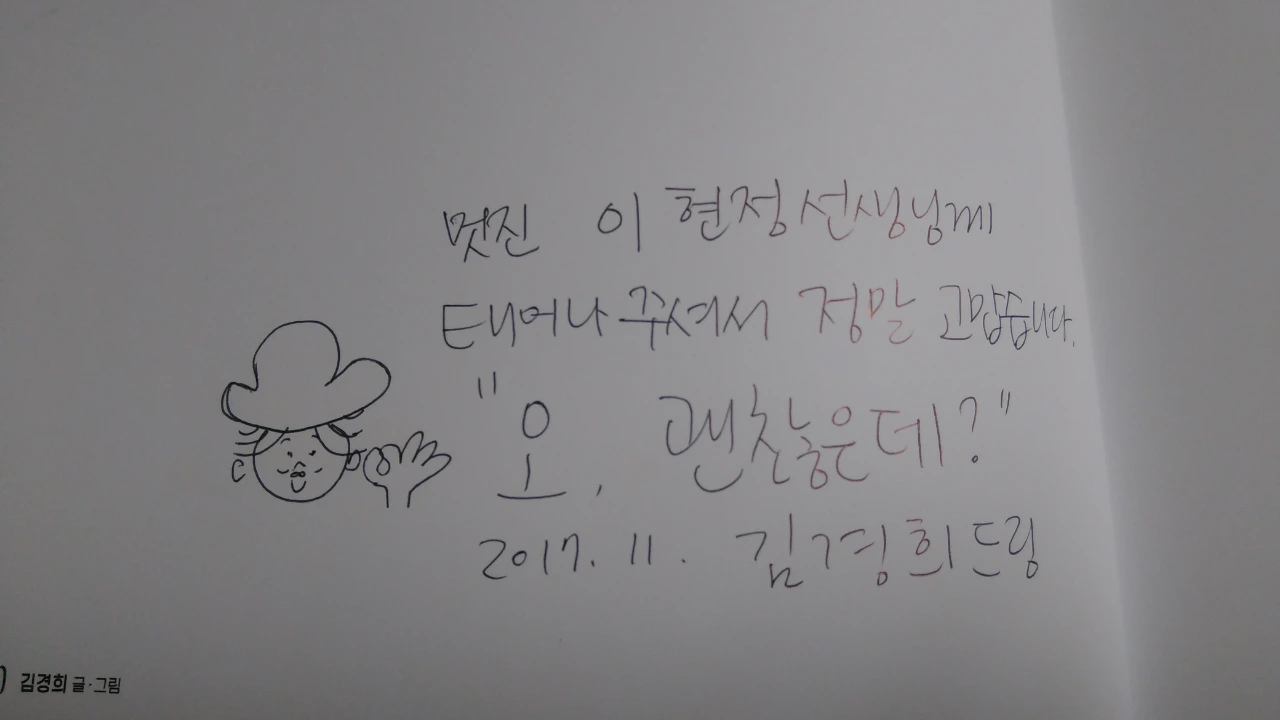 멋진 이현정선생님께
태어나 주셔서 정말 고맙습니다.
"오, 괜찮은데?"
2017. 11. 김경희드림
김경희 글·그림